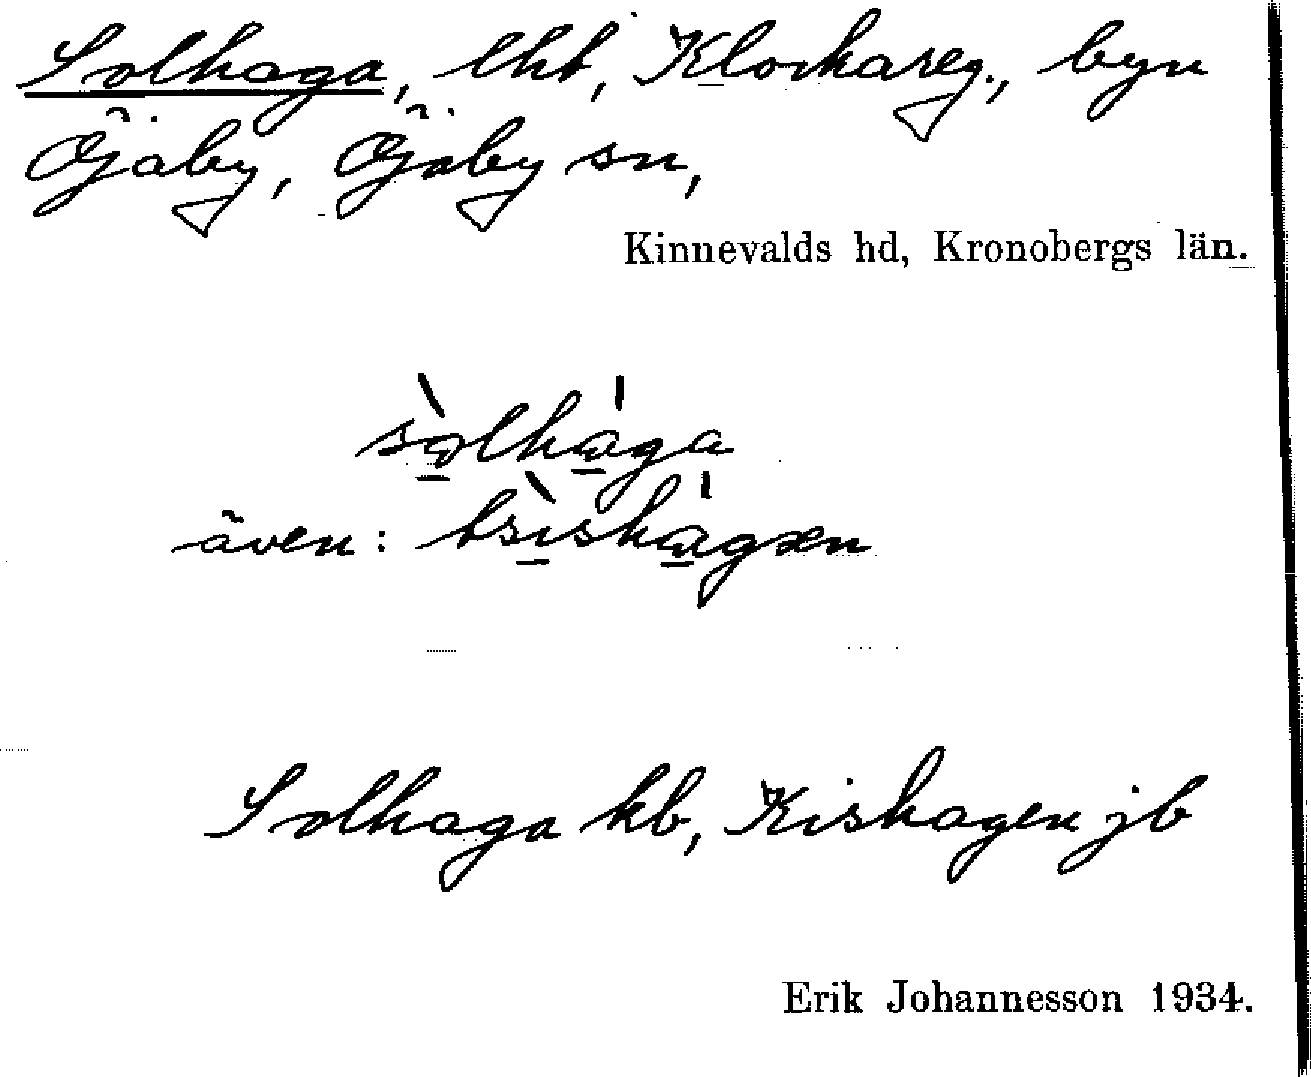 Solhaga, lht, Klockareg., byn
Öjaby, Öjaby sn,
Kinnevalds hd, Kronobergs län.
sòlhàga
även: tsishagen
Solhaga kb, Kishagen jb
Erik Johannesson 1934.